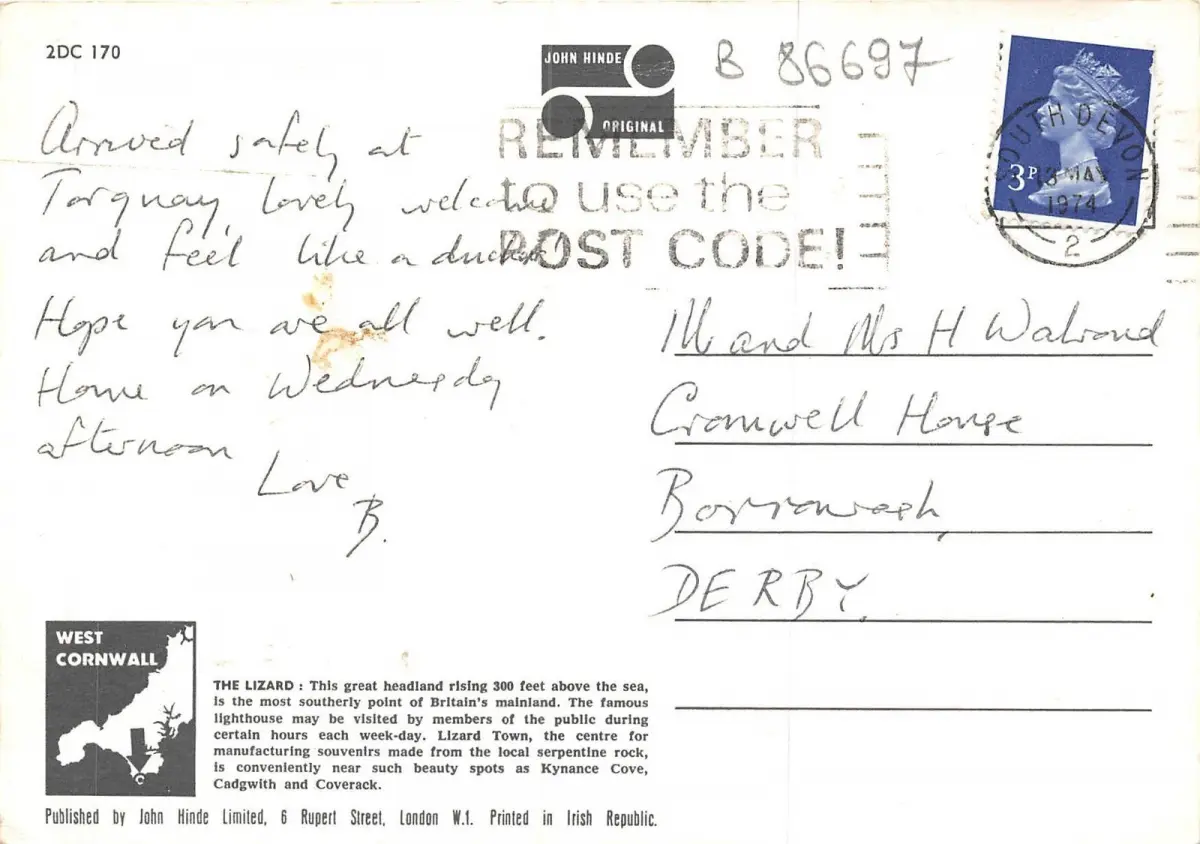 2DC 170
JOHN HINDE
ORIGINAL
B 86697
REMEMBER
to use the
POST CODE!
SOUTH DEVON
13 MAY
1974
2
3P
Arrived safely at
Torquay, lovely welcome
and feel like a
Hope you are all well.
Home on Wednesday
afternoon
Love
B.
M and Mrs H Walrond
Cromwell House
Borrowash,
DERBY.
WEST
CORNWALL
THE LIZARD : This great headland rising 300 feet above the sea,
is the most southerly point of Britain's mainland. The famous
lighthouse may be visited by members of the public during
certain hours each week-day. Lizard Town, the centre for
manufacturing souvenirs made from the local serpentine rock,
is conveniently near such beauty spots as Kynance Cove,
Cadgwith and Coverack.
Published by John Hinde Limited, 6 Rupert Street, London W.1. Printed in Irish Republic.